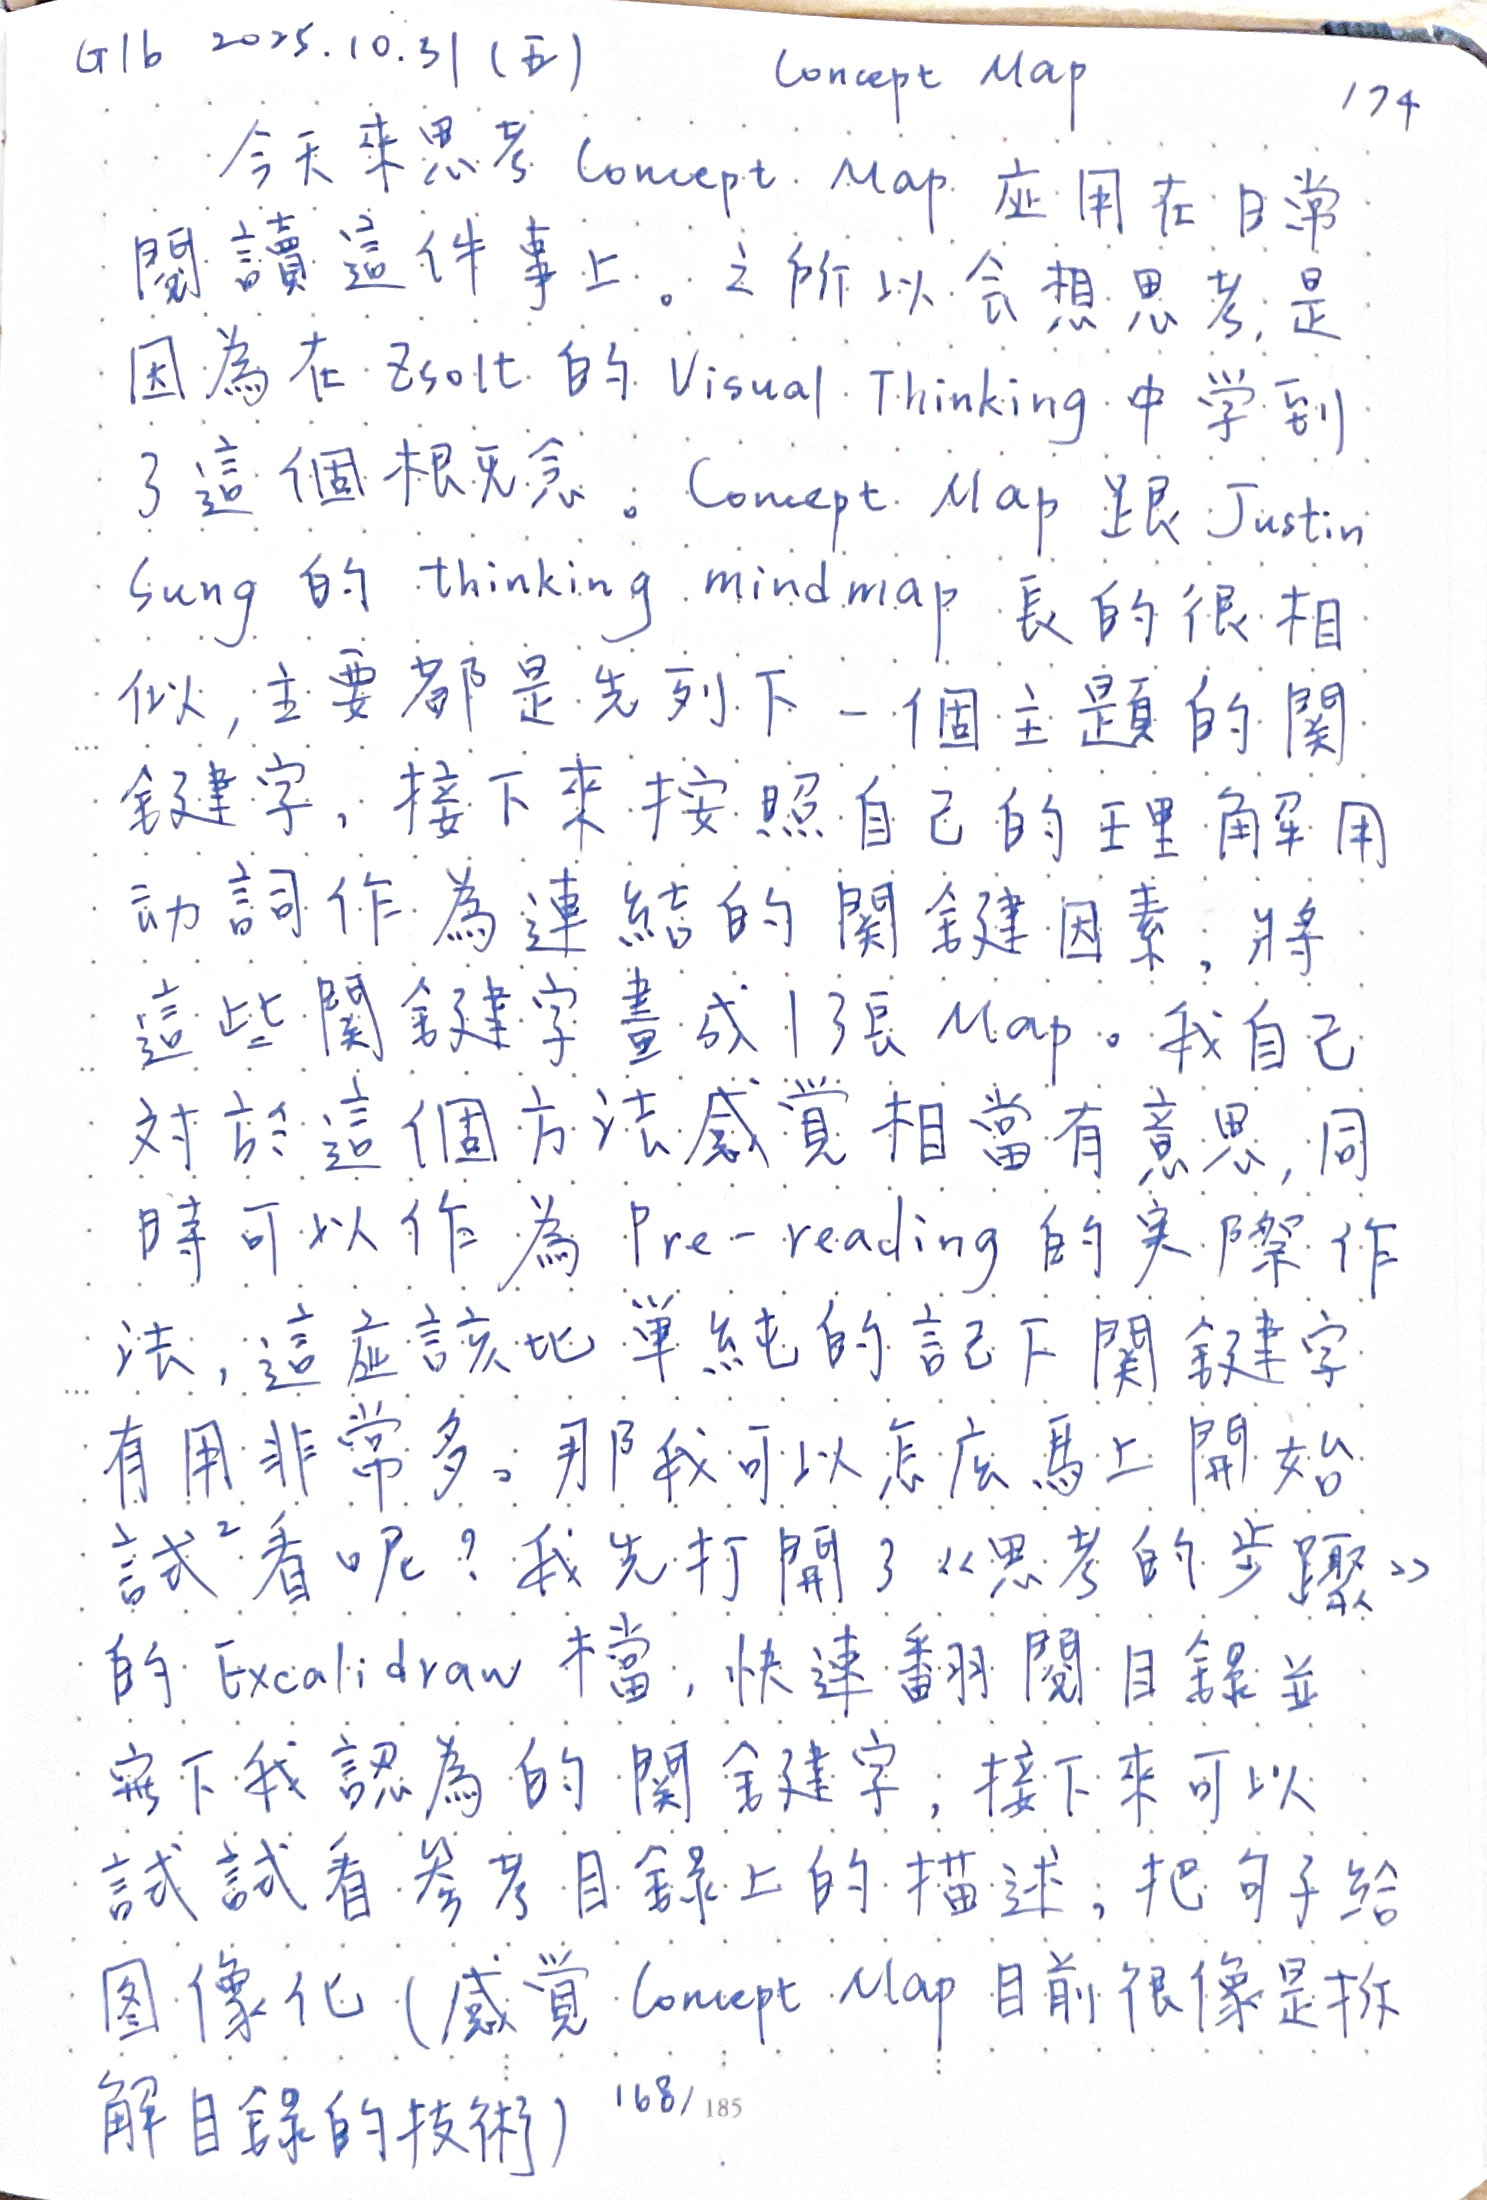 G16 2025.10.31 (五) Concept Map 174
今天來思考 Concept Map 应用在日常
閱讀這件事上。之所以会想思考,是
因為在 Zsolt 的 Visual Thinking 中学到
了這個概念。Concept Map 跟 Justin
Sung 的 thinking mindmap 長的很相
似,主要都是先列下一個主題的関
鍵字,接下來按照自己的理解用
动詞作為連結的関鍵因素,將
這些関鍵字畫成1張 Map。我自己
对於這個方法感覚相當有意思,同
時可以作為 Pre-reading 的実際作
法,這应該比単純的記下関鍵字
有用非常多。那我可以怎広馬上開始
試²看呢?我先打開了《思考的步驟》
的 Excalidraw 檔,快速翻閱目錄並
寫下我認為的関鍵字,接下來可以
試試看參考目錄上的描述,把句子給
图像化(感覚 Concept Map 目前很像是拆
解目錄的技術) 168/185